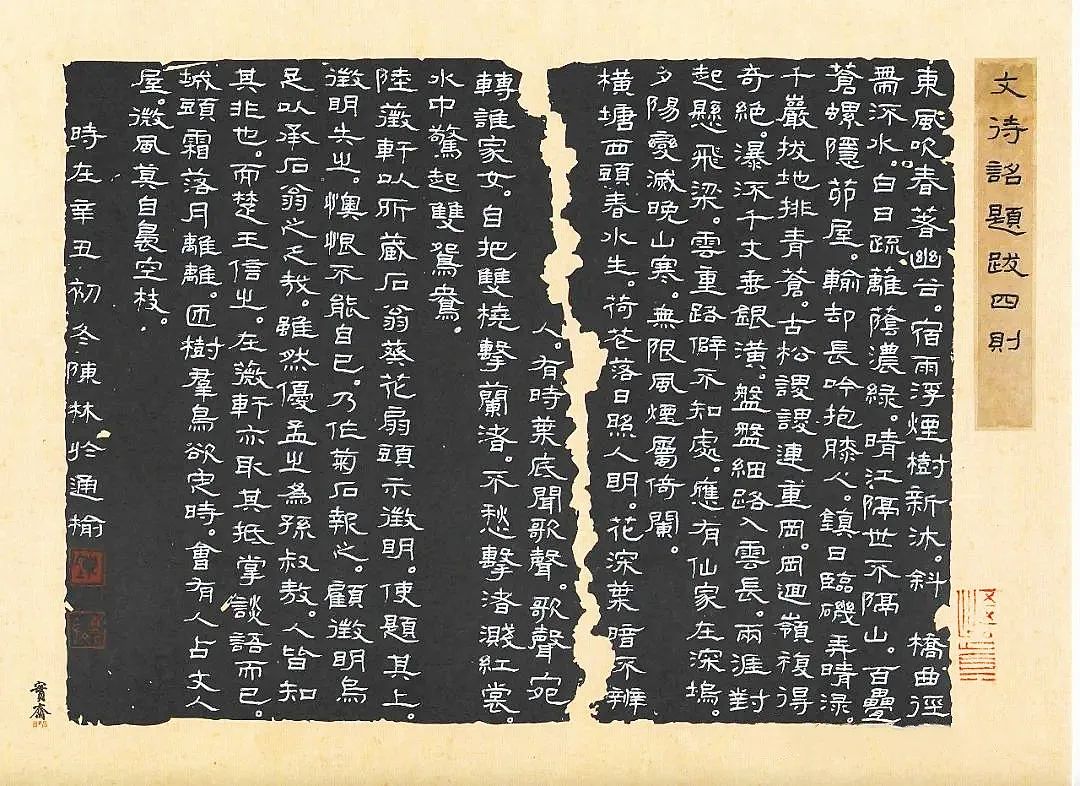 文待詔題跋四則
東風吹春暮幽谷。宿雨浮煙樹新沐。斜橋曲徑
帶流水。白日疏蘺蔭濃綠。晴江隔世不隔山。百疊
蒼螺隱茆屋。輸却長吟抱膝人。鎮日臨磯弄晴淥。
千巖拔地排青蒼。古松謖謖連重岡。岡迴嶺複得
奇絕。瀑流千丈垂銀潢。盤盤細路入雲長。兩涯對
起懸飛梁。雲重路僻不知處。應有仙家在深塢。
夕陽變滅晚山寒。無限風煙屬倚闌。
橫塘西頭春水生。荷花落日照人明。花深葉暗不辨
人。有時葉底聞歌聲。歌聲宛
轉誰家女。自把雙橈擊蘭渚。不愁擊渚濺紅裳。
水中驚起雙鴛鴦。
陸薇軒以所藏石翁葵花扇頭示徵明。使題其上。
徵明失之。懊恨不能自已。乃作菊石報之。顧徵明烏
足以承石翁之乏哉。雖然優孟之為孫叔敖。人皆知
其非也。而楚王信之。在薇軒亦取其抵掌談語而已。
城頭霜落月離離。匝樹羣烏欲定時。會有人占丈人
屋。微風莫自裊空枝。
時在辛丑初冬陳林於通榆
寶齋